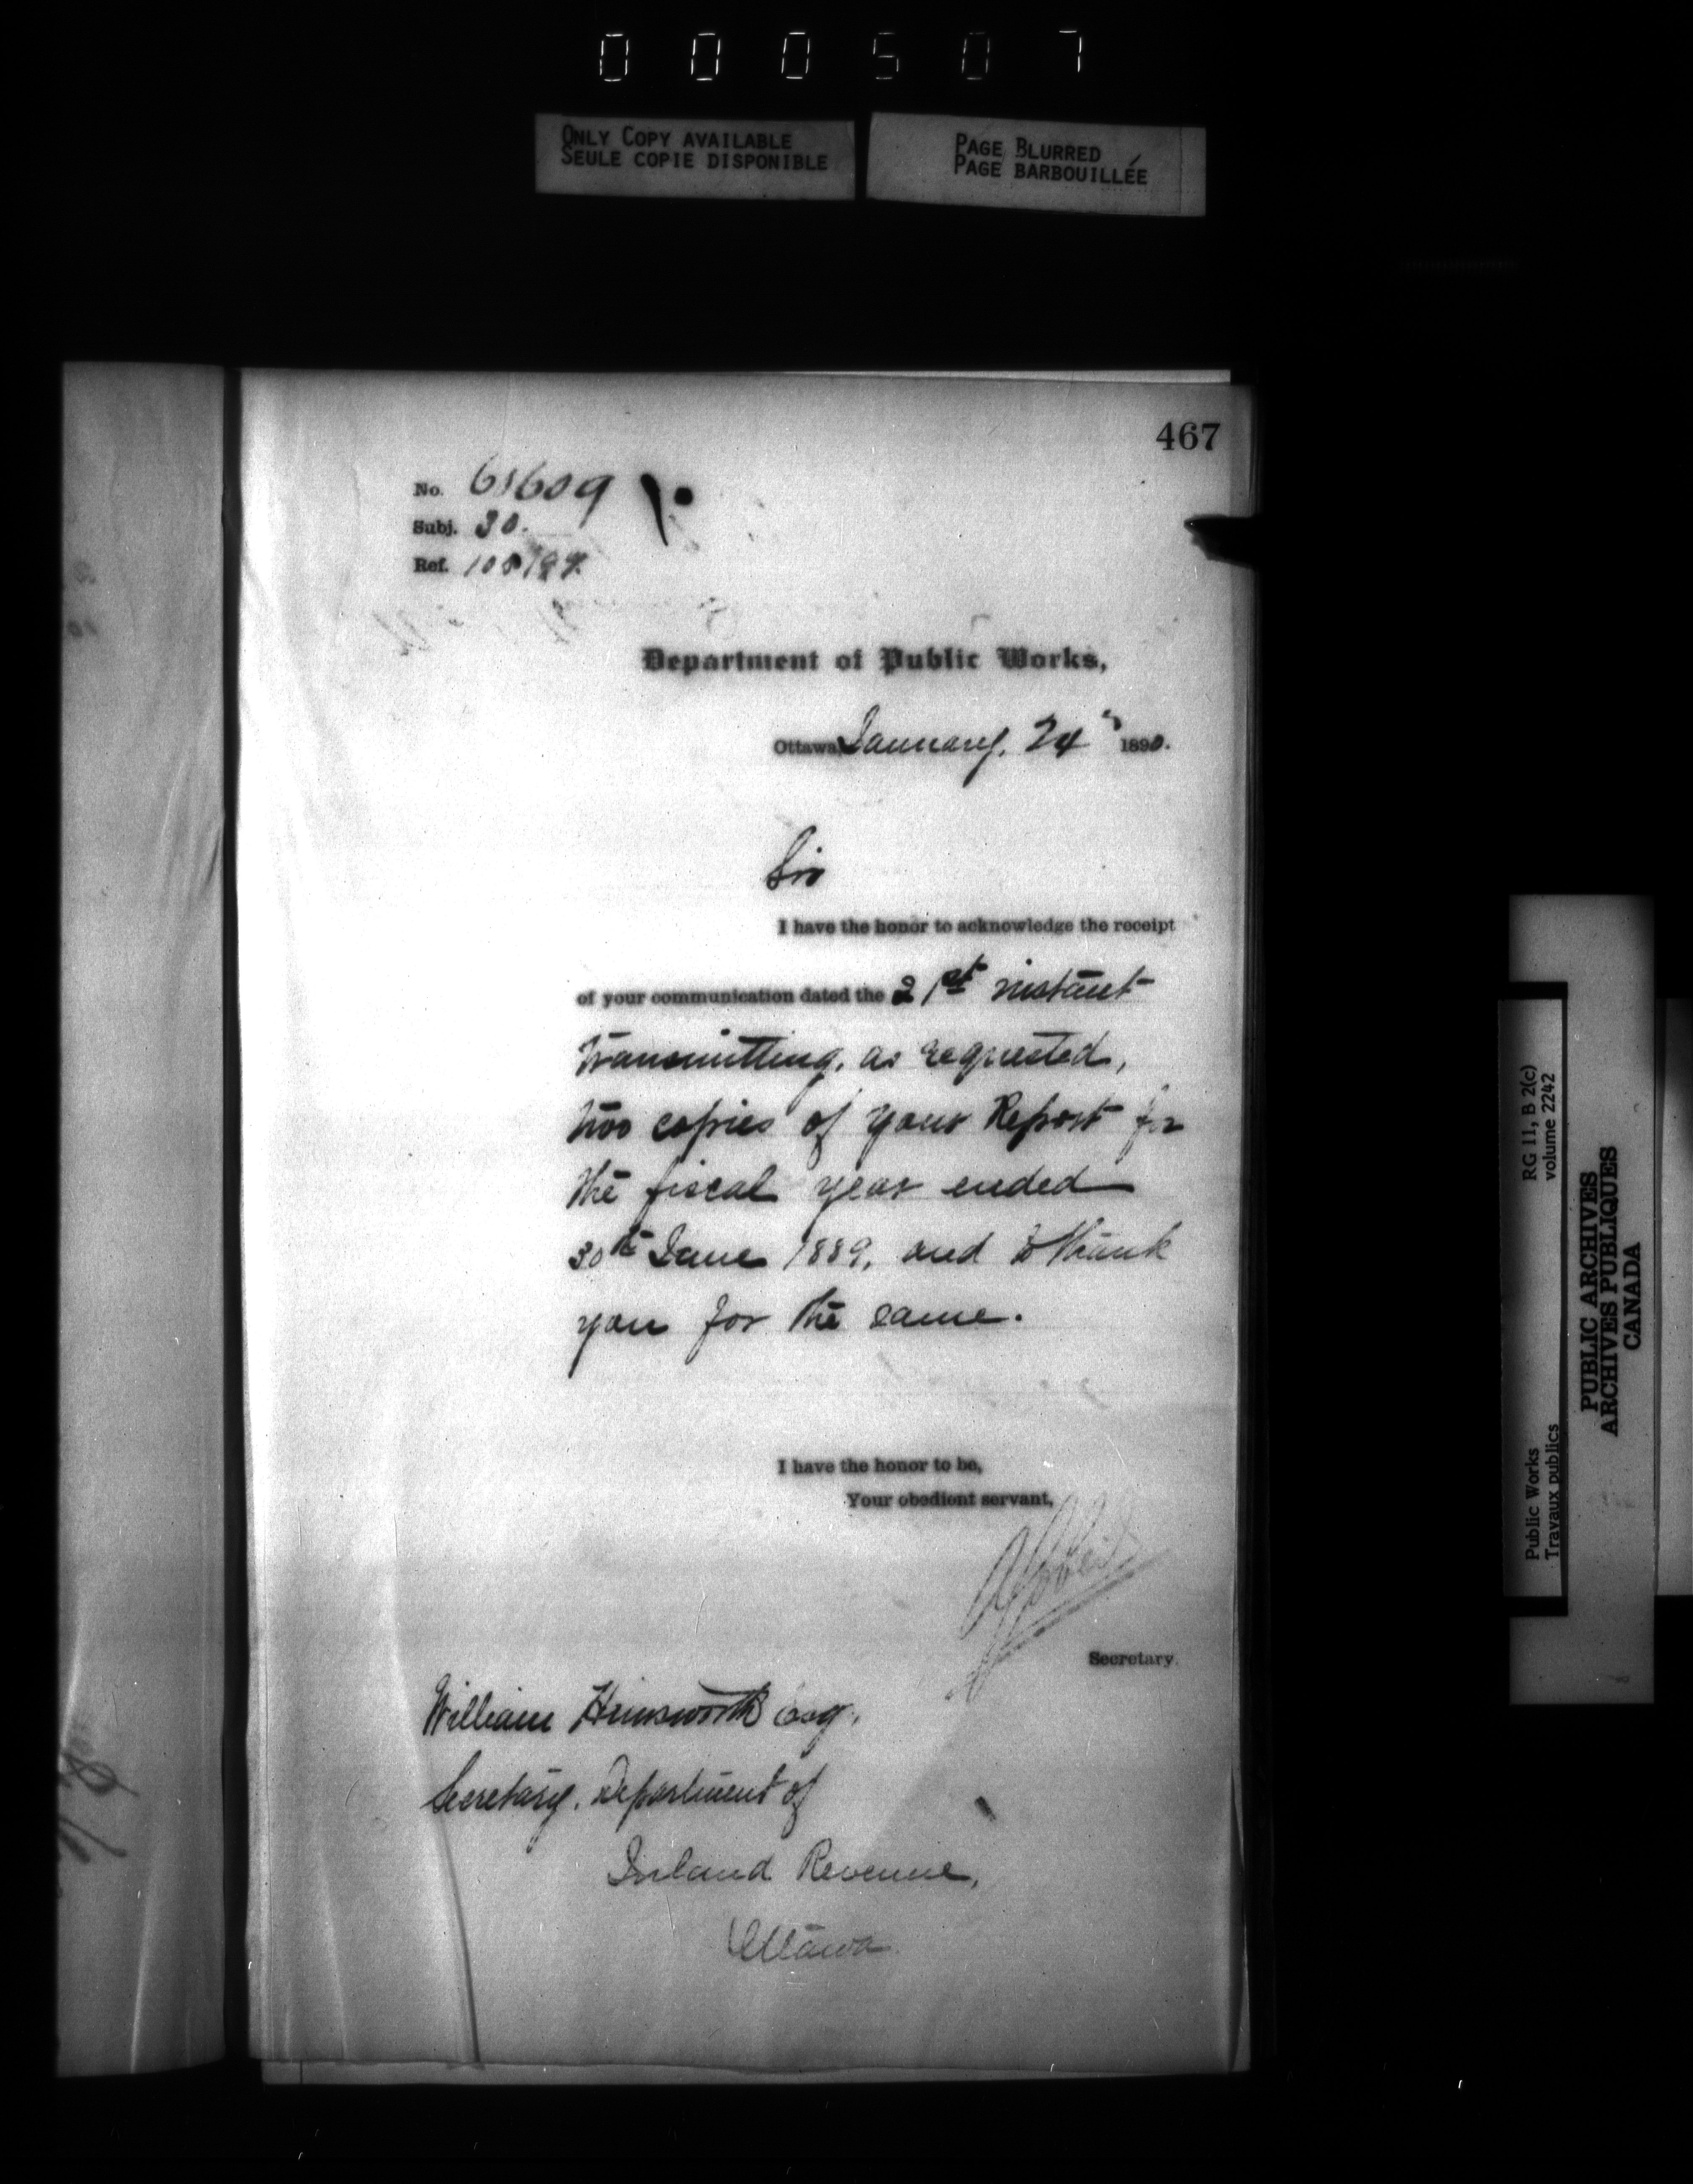 000507
ONLY COPY AVAILABLE
SEULE COPIE DISPONIBLE
PAGE BLURRED
PAGE BARBOUILLÉE
467
No.
Subj. 30.
Ref.
Department of Public Works,
Ottawa, January, 24 1890.
Sir
I have the honor to acknowledge the receipt
of your communication dated the 21st instant
transmitting, as requested,
two copies of your Report for
the fiscal year ended
30th June 1889, and to thank
you for the same.
I have the honor to be,
Your obedient servant,
Secretary.
William Himsworth Esq.
Secretary, Department of
Inland Revenue,
Ottawa
RG 11, B 2(c)
volume 2242
Public Works
Travaux publics
PUBLIC ARCHIVES
ARCHIVES PUBLIQUES
CANADA